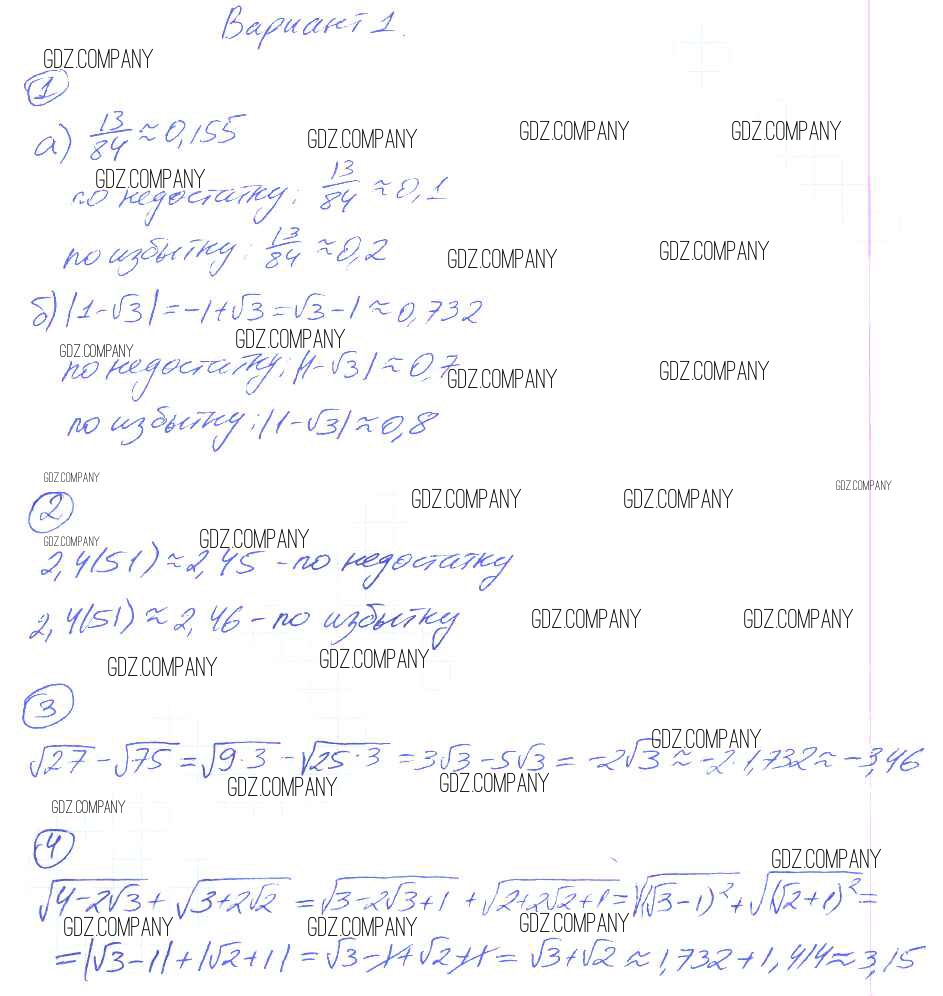 Вариант 1.
GDZ.COMPANY
1
а) 13/84 ≈ 0,155
GDZ.COMPANY GDZ.COMPANY GDZ.COMPANY
GDZ.COMPANY
по недостатку: 13/84 ≈ 0,1
по избытку: 13/84 ≈ 0,2
GDZ.COMPANY GDZ.COMPANY
б) |1-√3| = -1+√3 = √3-1 ≈ 0,732
GDZ.COMPANY GDZ.COMPANY
по недостатку: |1-√3| ≈ 0,7
GDZ.COMPANY GDZ.COMPANY
по избытку: |1-√3| ≈ 0,8
GDZ.COMPANY GDZ.COMPANY
2
GDZ.COMPANY GDZ.COMPANY
GDZ.COMPANY GDZ.COMPANY
2,4(51) ≈ 2,45 - по недостатку
2,4(51) ≈ 2,46 - по избытку
GDZ.COMPANY GDZ.COMPANY
GDZ.COMPANY GDZ.COMPANY
3
GDZ.COMPANY
√27 - √75 = √9·3 - √25·3 = 3√3 - 5√3 = -2√3 ≈ -2·1,732 ≈ -3,46
GDZ.COMPANY GDZ.COMPANY
GDZ.COMPANY
4
GDZ.COMPANY
√4-2√3 + √3+2√2 = √3-2√3+1 + √2+2√2+1 = √(√3-1)² + √(√2+1)² =
GDZ.COMPANY GDZ.COMPANY GDZ.COMPANY
= |√3-1| + |√2+1| = √3-1+√2+1 = √3+√2 ≈ 1,732+1,414 ≈ 3,15